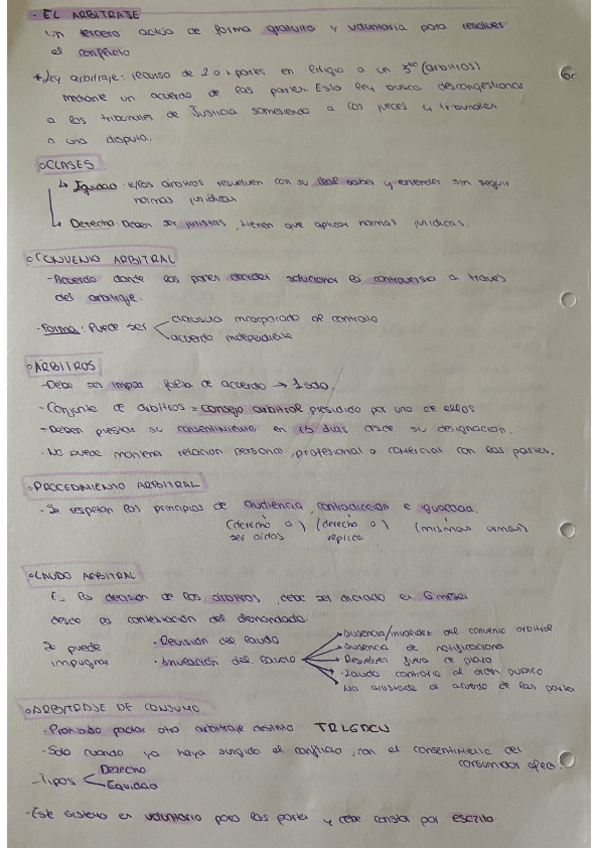 - EL ARBITRAJE
un tercero actúa de forma gratuita y voluntaria para resolver
el conflicto
*Ley arbitraje: recurso de 2 o + partes en litigio a un 3ero (árbitros)
mediante un acuerdo de las partes. Esta ley busca descongestionar
a los tribunales de Justicia sometiendo a los jueces y tribunales
a una disputa.
6
CLASES
↳ Equidad: ellos árbitros resuelven con su leal saber y entender sin seguir
normas jurídicas
↳ Derecho: Deben ser juristas, tienen que aplicar normas jurídicas.
CONVENIO ARBITRAL
- Acuerdo donde las partes deciden solucionar la controversia a través
del arbitraje.
- Forma: Puede ser
clausula incorporada al contrato
acuerdo independiente
ÁRBITROS
- Debe ser impar falta de acuerdo → 1 solo.
- Conjunto de árbitros = consejo arbitral presidido por uno de ellos
- Deben prestar su consentimiento en 15 días desde su designación.
- No puede mantener relación personal, profesional o comercial con las partes.
PROCEDIMIENTO ARBITRAL
- Se respetan los principios de audiencia, contradicción e igualdad.
(derecho a) (derecho a) (mismas armas)
ser oídos réplica
LAUDO ARBITRAL
Es la decisión de los árbitros, debe ser dictado en 6 meses
desde la contestación del demandado.
Se puede
impugnar
· Revisión del laudo
· Anulación del laudo
Ausencia/invalidez del convenio arbitral
Ausencia de notificaciones
Resuelven fuera de plazo
Laudo contrario al orden público
No ajustarse al acuerdo de las partes
ARBITRAJE DE CONSUMO
- Prohibido pactar otro arbitraje distinto TRLGDCU
- Solo cuando ya haya surgido el conflicto, con el consentimiento del
consumidor
- Tipos
Derecho
Equidad
- Este sistema es voluntario para las partes y debe constar por escrito